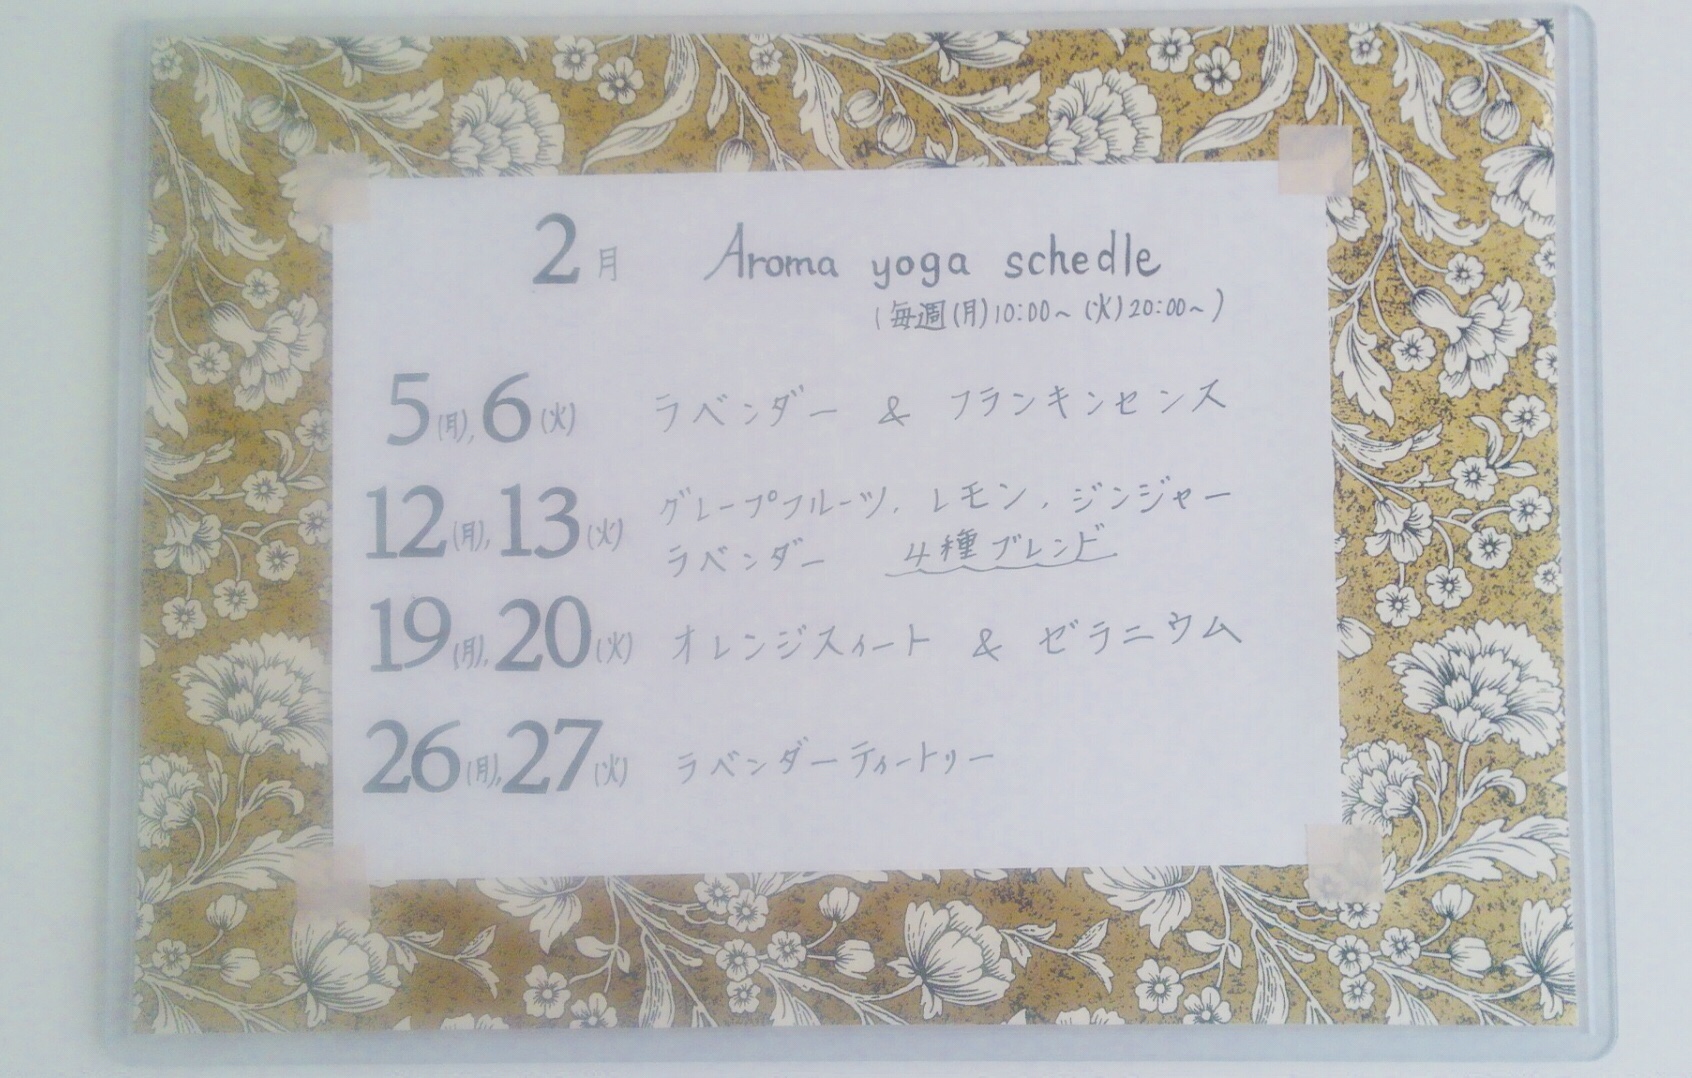 2月 Aroma yoga schedle
(毎週(月)10:00~ (火)20:00~)
5(月),6(火) ラベンダー & フランキンセンス
12(月),13(火) グレープフルーツ, レモン, ジンジャー
ラベンダー 4種ブレンド
19(月),20(火) オレンジスィート & ゼラニウム
26(月),27(火) ラベンダーティートゥリー